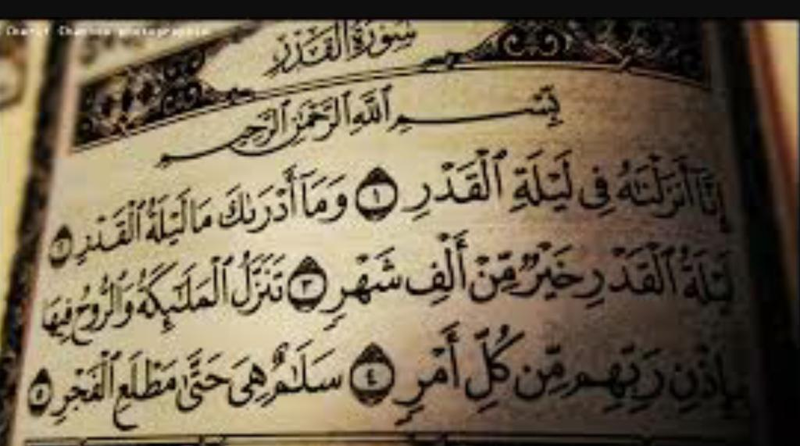 Charif Chamma photographie
سُورَةُ الْقَدْرِ
بِسْمِ اللَّهِ الرَّحْمَٰنِ الرَّحِيمِ
إِنَّا أَنزَلْنَٰهُ فِى لَيْلَةِ الْقَدْرِ ١ وَمَا أَدْرَىٰكَ مَا لَيْلَةُ الْقَدْرِ ٢
لَيْلَةُ الْقَدْرِ خَيْرٌ مِّنْ أَلْفِ شَهْرٍ ٣ تَنَزَّلُ الْمَلَٰٓئِكَةُ وَالرُّوحُ فِيهَا
بِإِذْنِ رَبِّهِم مِّن كُلِّ أَمْرٍ ٤ سَلَٰمٌ هِىَ حَتَّىٰ مَطْلَعِ الْفَجْرِ ٥